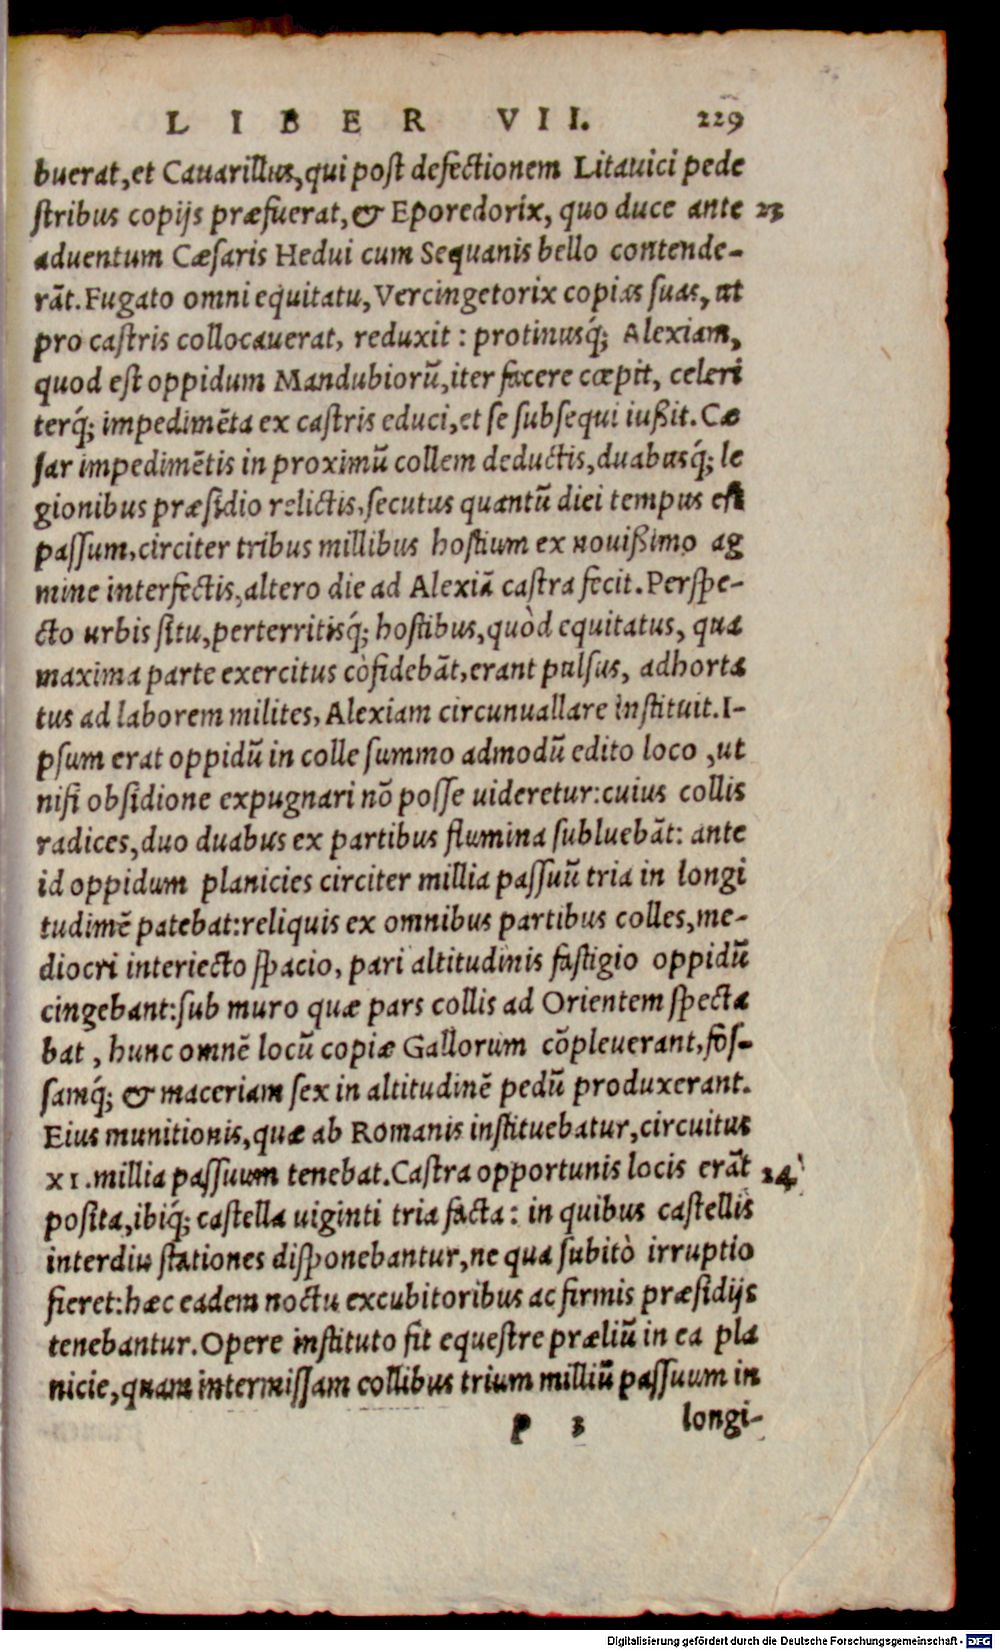 LIBER VII. 229
buerat,et Cauarillus,qui post defectionem Litauici pede
stribus copijs præfuerat,& Eporedorix, quo duce ante 23
aduentum Cæsaris Hedui cum Sequanis bello contende-
rāt.Fugato omni equitatu,Vercingetorix copias suas, ut
pro castris collocauerat, reduxit : protinusq́; Alexiam,
quod est oppidum Mandubiorū,iter facere cœpit, celeri
terq́; impedimēta ex castris educi,et se subsequi iußit.Cæ
sar impedimētis in proximū collem deductis,duabusq́; le
gionibus præsidio relictis,secutus quantū diei tempus est
passum,circiter tribus millibus hostium ex nouißimo ag
mine interfectis,altero die ad Alexiā castra fecit.Perspe-
cto urbis situ,perterritisq́; hostibus,quòd equitatus, qua
maxima parte exercitus còfidebāt,erant pulsus, adhorta
tus ad laborem milites, Alexiam circunuallare instituit.I-
psum erat oppidū in colle summo admodū edito loco ,ut
nisi obsidione expugnari nō posse uideretur:cuius collis
radices,duo duabus ex partibus flumina subluebāt: ante
id oppidum planicies circiter millia passuū tria in longi
tudimē patebat:reliquis ex omnibus partibus colles,me-
diocri interiecto spacio, pari altitudinis fastigio oppidū
cingebant:sub muro quæ pars collis ad Orientem specta
bat , hunc omnē locū copiæ Gallorum cōpleuerant,fos-
samq́; & maceriam sex in altitudinē pedū produxerant.
Eius munitionis,quæ ab Romanis instituebatur,circuitus
XI.millia passuum tenebat.Castra opportunis locis erāt 24
posita,ibiq́; castella uiginti tria facta: in quibus castellis
interdiu stationes disponebantur,ne qua subitò irruptio
fieret:hæc eadem noctu excubitoribus ac firmis præsidijs
tenebantur.Opere instituto fit equestre præliū in ea pla
nicie,quam intermissam collibus trium milliū passuum in
P 3 longi-
Digitalisierung gefördert durch die Deutsche Forschungsgemeinschaft - DFG